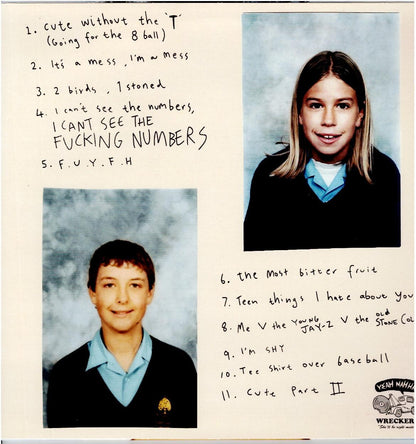 1. cute without the 'T'
(Going for the 8 ball)
2. Its a mess, I'm a mess
3. 2 birds, 1 stoned
4. I can't see the numbers,
I CANT SEE THE
FUCKING NUMBERS
5. F.U.Y.F.H
6. the most bitter fruit
7. Teen things I hate about you
8. Me V the YOUNG
JAY-Z V the OLD
STONE COL
9. I'm SHY
10. Tee shirt over baseball
11. Cute Part II
YEAH NAH
WRECKER